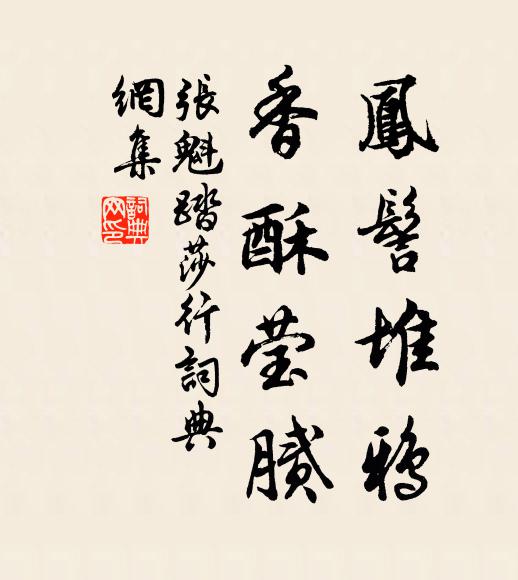 鳳髻堆鴉
香酥莹膩
張魁踏莎行詞典
網集
詞典
网印